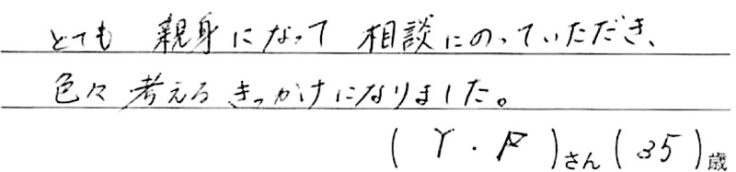 とても 親身になって 相談にのっていただき、
色々 考える きっかけになりました。
( Y・F )さん ( 35 )歳